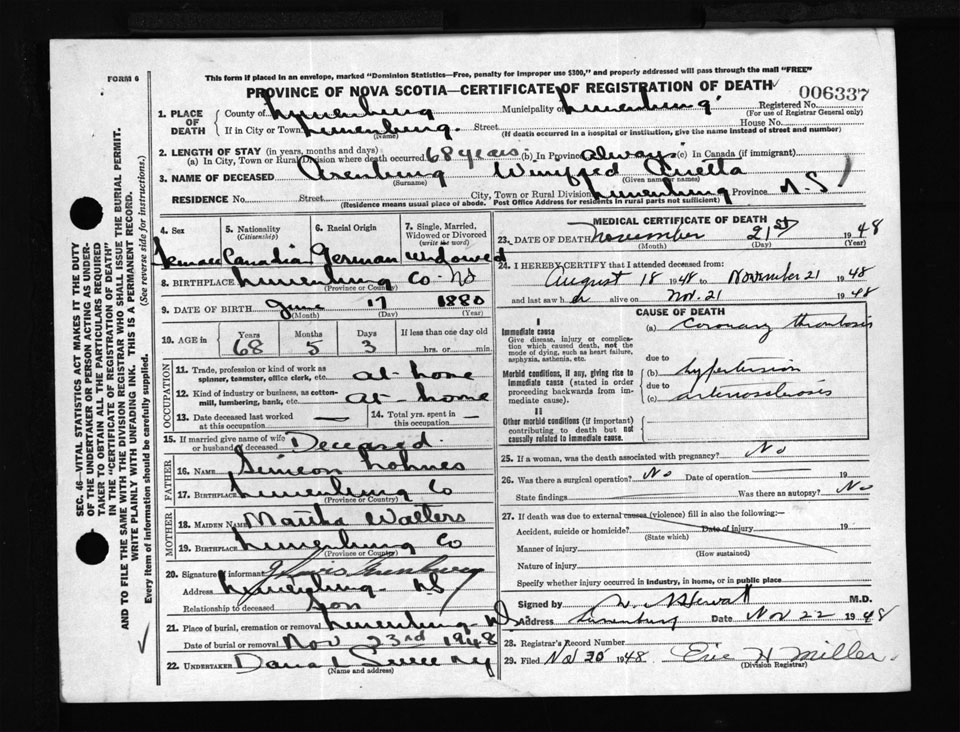 FORM 6
This form if placed in an envelope, marked "Dominion Statistics—Free, penalty for improper use $300," and properly addressed will pass through the mail "FREE"
PROVINCE OF NOVA SCOTIA—CERTIFICATE OF REGISTRATION OF DEATH
006337
1. PLACE OF DEATH
County of Lunenburg Municipality of Lunenburg Registered No.
(For use of Registrar General only)
If in City or Town Lunenburg. Street House No.
(Name) (If death occurred in a hospital or institution, give the name instead of street and number)
2. LENGTH OF STAY (in years, months and days)
(a) In City, Town or Rural Division where death occurred 68 years (b) In Province always (c) In Canada (if immigrant)
3. NAME OF DECEASED Arenburg Winifred
(Surname) (Given name or names)
RESIDENCE No. Street City, Town or Rural Division Lunenburg Province N.S
(Residence means usual place of abode. Post Office Address for residents in rural parts not sufficient)
4. Sex 5. Nationality (Citizenship) 6. Racial Origin 7. Single, Married, Widowed or Divorced (write the word)
Female Canadian German Widowed
8. BIRTHPLACE Lunenburg Co NS
(Province or Country)
9. DATE OF BIRTH June 17 1880
(Month) (Day) (Year)
10. AGE in Years Months Days If less than one day old
68 5 3 hrs. or min.
OCCUPATION
11. Trade, profession or kind of work as spinner, teamster, office clerk, etc. at home
12. Kind of industry or business, as cotton-mill, lumbering, bank, etc. at home
13. Date deceased last worked at this occupation — 14. Total yrs. spent in this occupation —
15. If married give name of wife or husband of deceased Deceased.
FATHER
16. NAME Simeon Lohnes
17. BIRTHPLACE Lunenburg Co
(Province or Country)
MOTHER
18. MAIDEN NAME Martha Walters
19. BIRTHPLACE Lunenburg Co
(Province or Country)
20. Signature of informant Arenburg
Address Lunenburg NS
Relationship to deceased Son
21. Place of burial, cremation or removal Lunenburg NS
Date of burial or removal Nov 23rd 1948
22. UNDERTAKER
(Name and address)
MEDICAL CERTIFICATE OF DEATH
23. DATE OF DEATH November 21st 1948
(Month) (Day) (Year)
24. I HEREBY CERTIFY that I attended deceased from:
August 18 1948 to November 21 1948
and last saw her alive on Nov. 21 1948
CAUSE OF DEATH
I
Immediate cause
Give disease, injury or complication which caused death, not the mode of dying, such as heart failure, asphyxia, asthenia, etc.
(a) coronary thrombosis
due to
Morbid conditions, if any, giving rise to immediate cause (stated in order proceeding backwards from immediate cause).
(b) hypertension
due to
(c) arteriosclerosis
II
Other morbid conditions (if important) contributing to death but not causally related to immediate cause.
25. If a woman, was the death associated with pregnancy? No
26. Was there a surgical operation? No Date of operation 19
State findings Was there an autopsy? No
27. If death was due to external causes (violence) fill in also the following:—
Accident, suicide or homicide? Date of injury 19
(State which)
Manner of injury
(How sustained)
Nature of injury
Specify whether injury occurred in industry, in home, or in public place
Signed by M.D.
Address Lunenburg Date Nov 22 1948
28. Registrar's Record Number
29. Filed Nov 30 1948 Eric H Miller
(Division Registrar)
SEC. 46—VITAL STATISTICS ACT MAKES IT THE DUTY
OF THE UNDERTAKER OR PERSON ACTING AS UNDER-
TAKER TO OBTAIN ALL THE PARTICULARS REQUIRED
IN THE "CERTIFICATE OF REGISTRATION OF DEATH"
AND TO FILE THE SAME WITH THE DIVISION REGISTRAR WHO SHALL ISSUE THE BURIAL PERMIT.
WRITE PLAINLY WITH UNFADING INK. THIS IS A PERMANENT RECORD.
Every item of information should be carefully supplied. (See reverse side for instructions.)